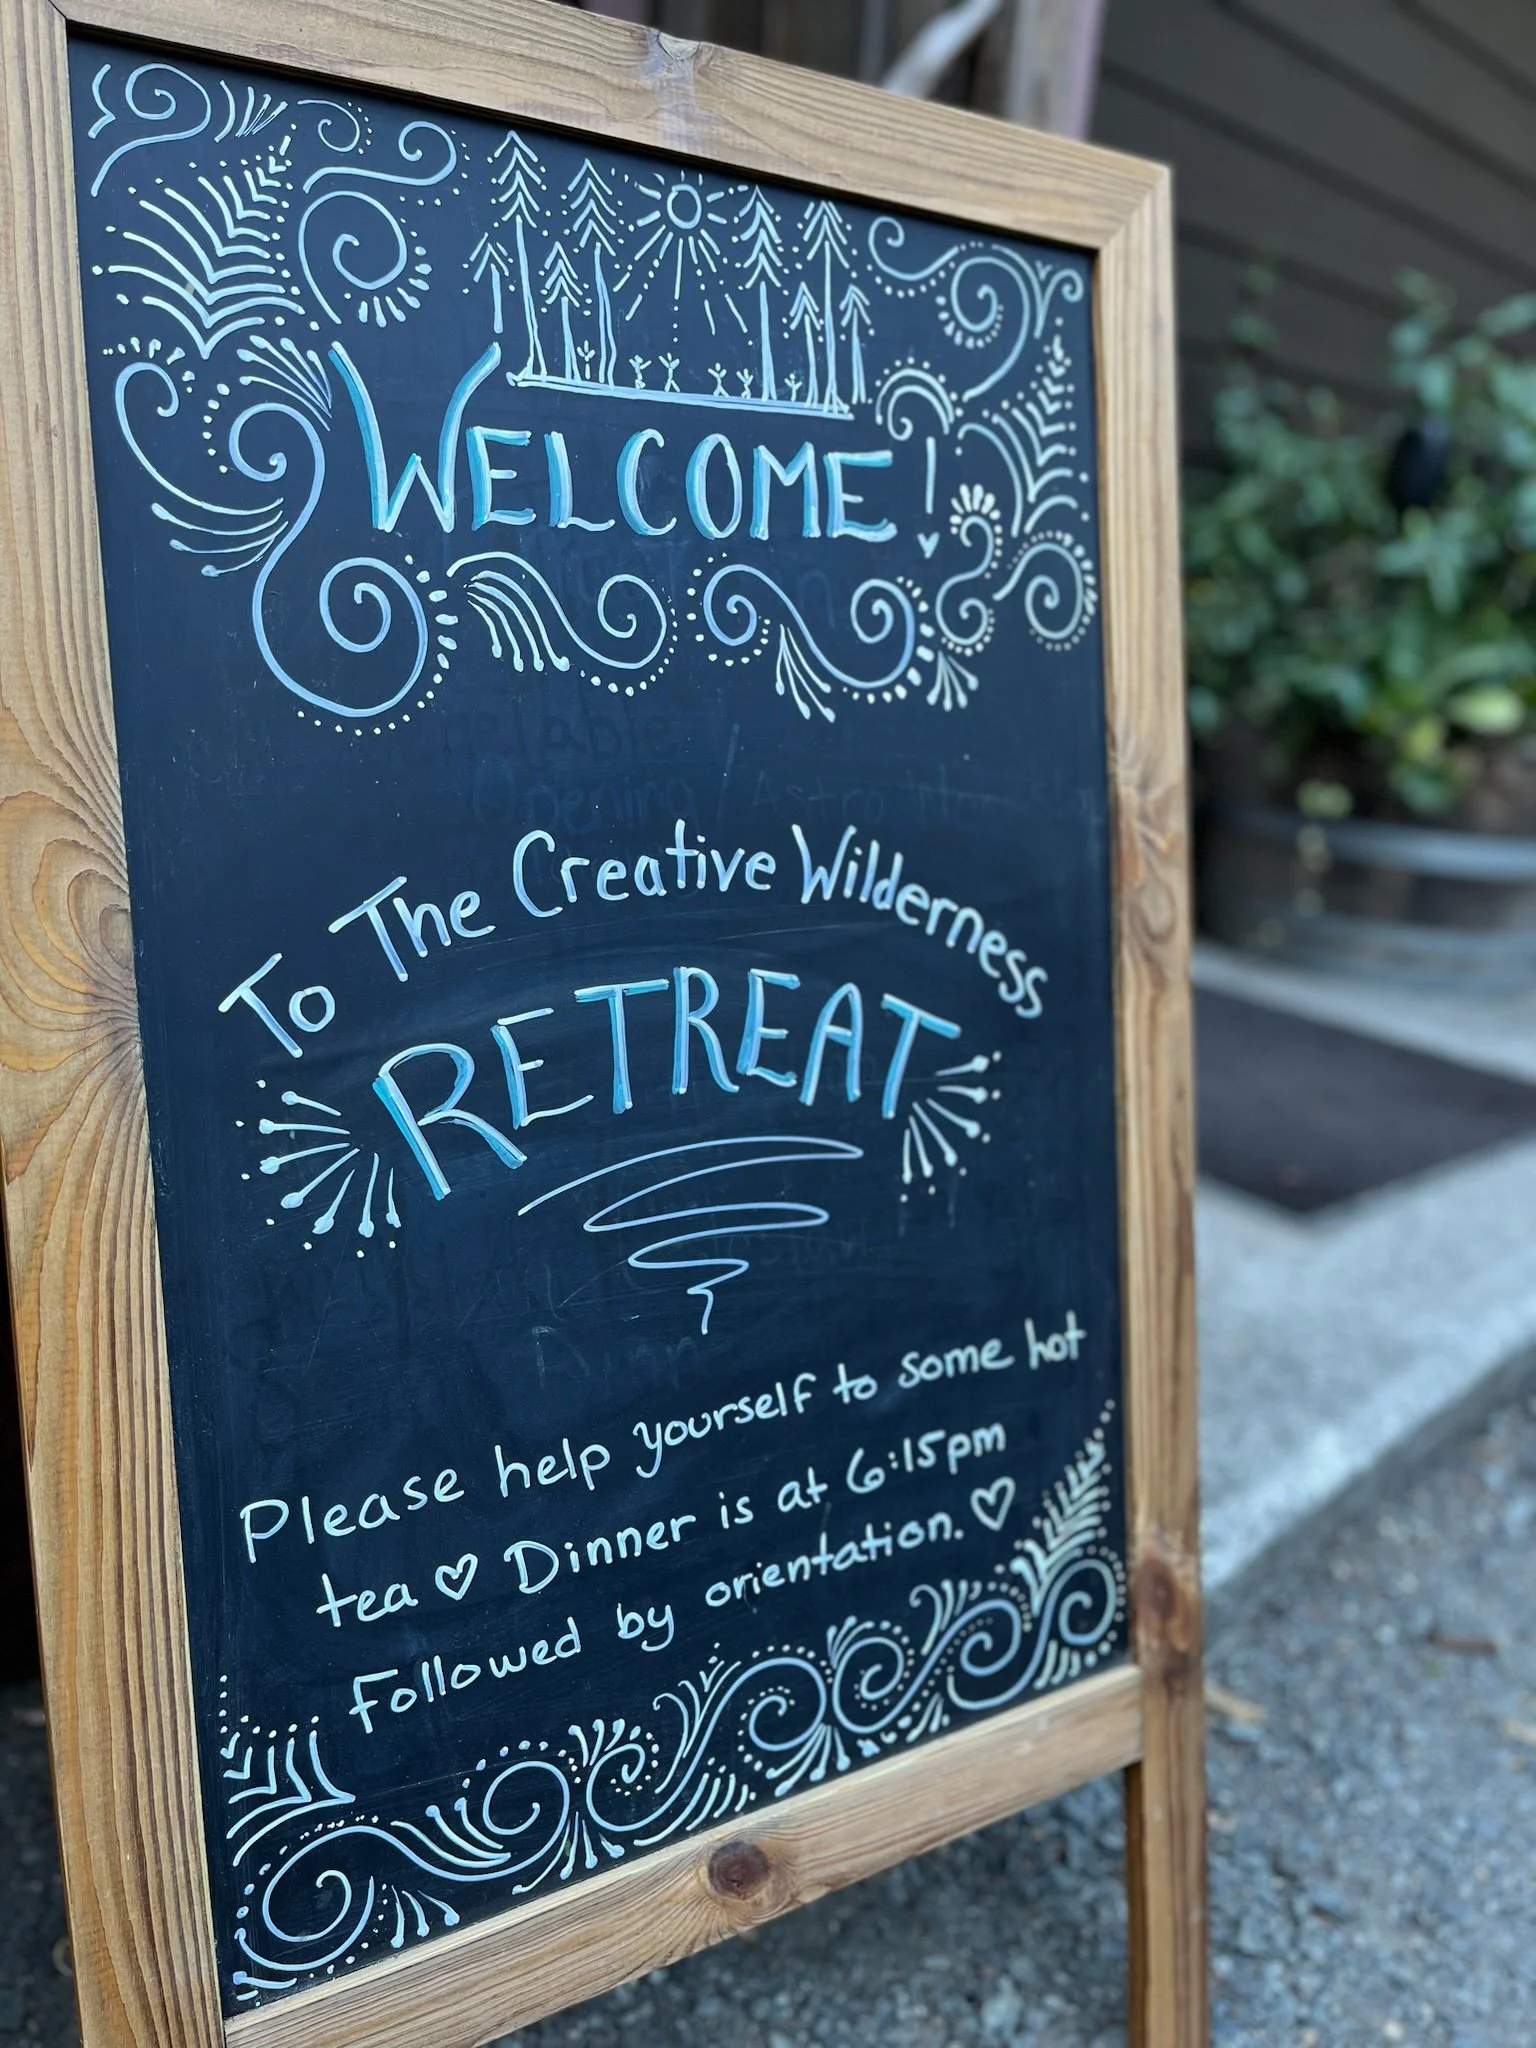 WELCOME!
To The Creative Wilderness
RETREAT
Please help yourself to some hot
tea ♡ Dinner is at 6:15pm
followed by orientation. ♡